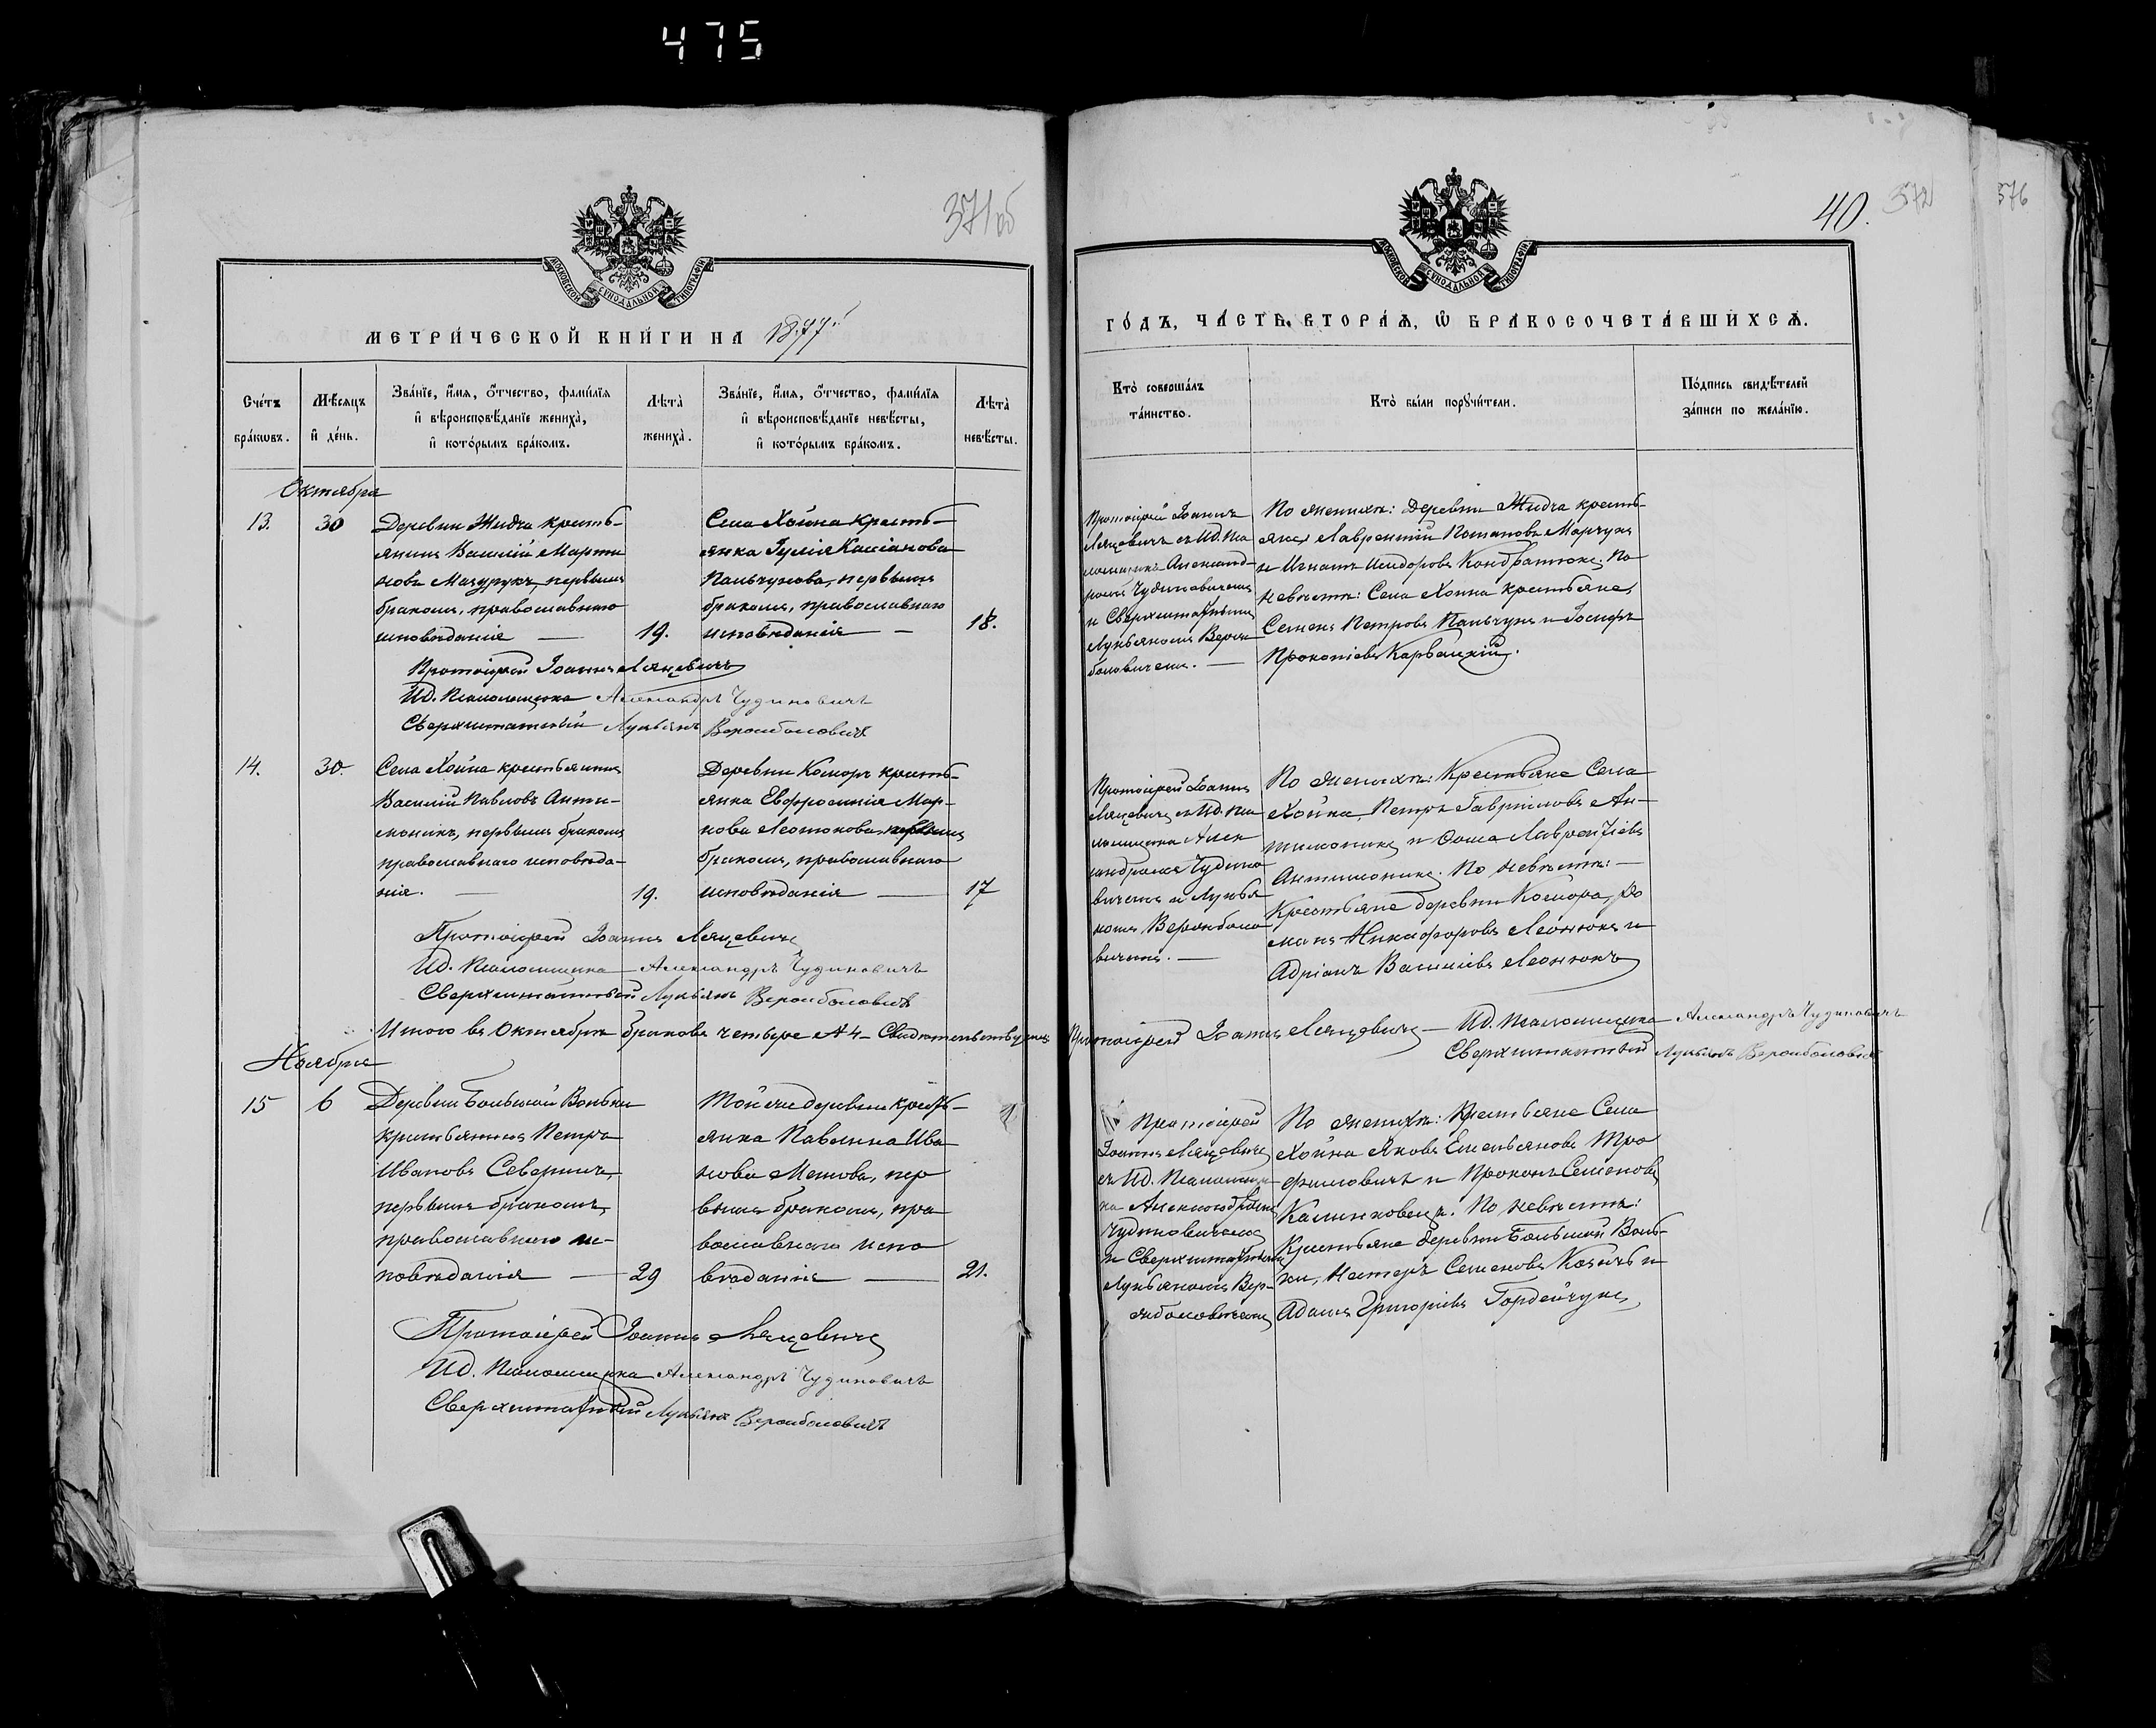 475
371об
40.
372
376
МОСКОВСКОЙ СѴНОДАЛЬНОЙ ТИПОГРАФІИ
МЕТРИ́ЧЕСКОЙ КНИ́ГИ НА 1877
Сче́тъ бра́кѡвъ.
Мѣ́сяцъ и҆ де́нь.
Зва́нїе, и҆́мѧ, ѻ҆́тчество, фами́лїѧ
и҆ вѣроисповѣ́данїе жениха̀,
и҆ кото́рымъ бра́комъ.
Лѣта̀ жениха̀.
Зва́нїе, и҆́мѧ, ѻ҆́тчество, фами́лїѧ
и҆ вѣроисповѣ́данїе невѣ́сты,
и҆ кото́рымъ бра́комъ.
Лѣта̀ невѣ́сты.
Октября
13.
30
Деревни Жидча кресть-
янинъ Василій Марти
новъ Мазурукъ, первымъ
бракомъ, православнаго
исповѣданія —
19.
Села Хойна кресть-
янка Іулія Касіанова
Пальчукова, первымъ
бракомъ, православнаго
исповѣданія —
18.
Протоіерей Іоаннъ Ляцевичъ
Ид. Псаломщика Александръ Чудиновичъ
Сверхштатный Лукьянъ Верамболовичъ
14.
30.
Села Хойна крестьянинъ
Василій Павловъ Анти-
монikъ, первымъ бракомъ
православнаго исповѣда-
нія. —
19.
Деревни Коморъ кресть-
янка Евфросинія Мар-
кова Леонюкова, первымъ
бракомъ, православнаго
исповѣданія —
17
Протоіерей Іоаннъ Ляцевичъ
Ид. Псаломщика Александръ Чудиновичъ
Сверхштатный Лукьянъ Верамболовичъ
Итого въ Октябрѣ браковъ четыре № 4 — Свидѣтельствуемъ
Ноября
15
6
Деревни Большой Вольки
крестьянинъ Петръ
Ивановъ Северинъ,
первымъ бракомъ,
православнаго ис-
повѣданія —
29
Той же деревни кресть-
янка Павлина Ива
нова
пер
вымъ бракомъ, пра
вославнаго испо
вѣданія —
21.
Протоіерей Іоаннъ Ляцевичъ
Ид. Псаломщика Александръ Чудиновичъ
Сверхштатный Лукьянъ Верамболовичъ
МОСКОВСКОЙ СѴНОДАЛЬНОЙ ТИПОГРАФІИ
ГО́ДЪ, ЧА́СТЬ ВТОРА́Ѧ, Ѡ҆ БРАКОСОЧЕТА́ВШИХСѦ.
Кто̀ соверша́лъ
та́инство.
Кто̀ бы́ли порꙋчи́тели.
По́дпись свидѣ́телей
за́писи по жела́нїю.
Протоіерей Іоаннъ
Ляцевичъ съ Ид. Пса
ломщика Александ-
ромъ Чудиновичемъ
и Сверхштатнымъ
Лукьяномъ Верам
боловичемъ. —
По женихѣ: Деревни Жидча кресть-
яне Лаврентій Потаповъ Марчукъ
и Игнатъ Исидоровъ Кондратюкъ. По
невѣстѣ: Села Хойна крестьяне,
Семенъ Петровъ Пальчукъ и Іосифъ
Прокопіевъ Карвацкій.
Протоіерей Іоаннъ
Ляцевичъ съ Ид. Пса
ломщика Алек
сандромъ Чудино
вичемъ и Лукья
номъ Верамболо
вичемъ. —
По женихѣ: Крестьяне Села
Хойна Петръ Гавріиловъ Ан-
тимоникъ и Ѳома Лаврентіевъ
Антимоникъ. По невѣстѣ: —
Крестьяне деревни Комора, Ро
манъ Никифоровъ Леонюкъ и
Адріанъ Василіевъ Леонюкъ
Протоіерей Іоаннъ Ляцевичъ — Ид. Псаломщика Александръ Чудиновичъ
Сверхштатный Лукьянъ Верамболовичъ
Протоіерей
Іоаннъ Ляцевичъ
съ Ид. Псаломщи
ка Александромъ
Чудиновичемъ
и Сверхштатнымъ
Лукьяномъ Вер-
амболовичемъ
По женихѣ: Крестьяне Села
Хойна Яковъ Емельяновъ Тро
фимовичъ и Прокопъ Семеновъ
Калинковецъ. По невѣстѣ:
Крестьяне деревни Большой Воль-
ки, Несторъ Семеновъ Козичъ и
Адамъ Григоріевъ Гордейчукъ